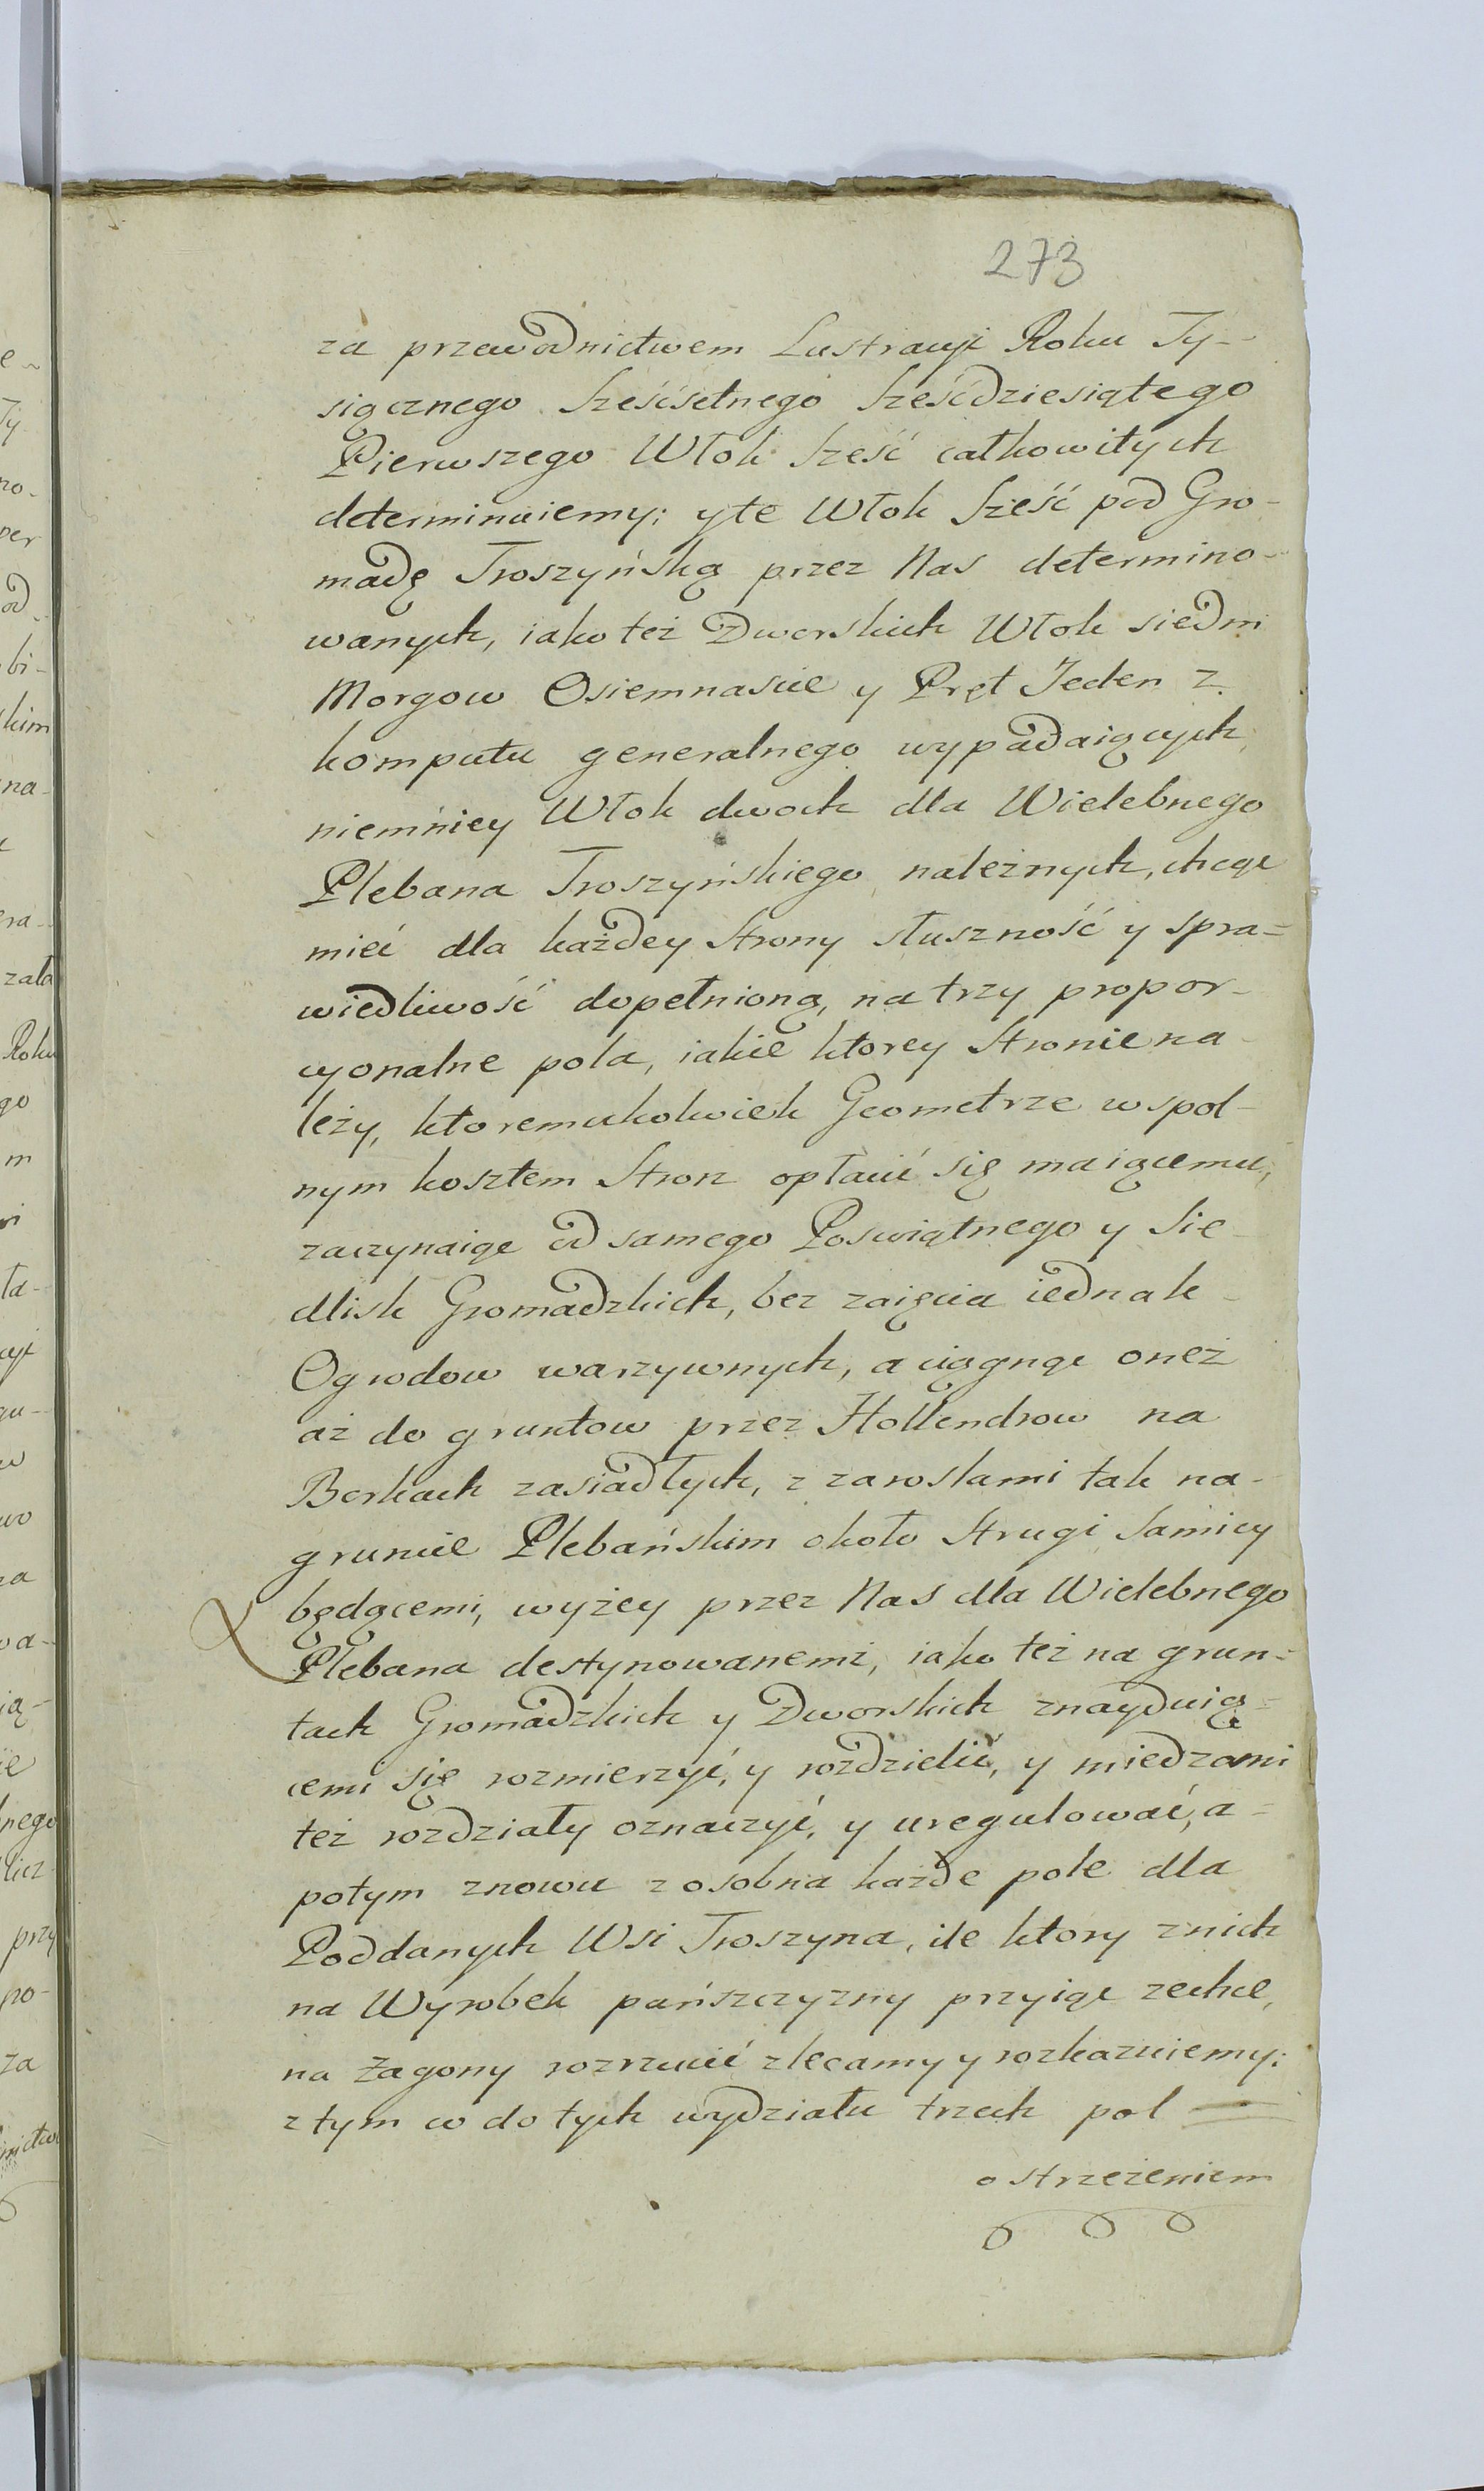 273
za przewodnictwem Lustracyi Roku Ty-
siącznego Sześćsetnego Sześćdziesiątego
Pierwszego Włok Sześć całkowitych
determinuiemy; yte Włok Sześć pod Gro-
madę Troszyńską przez Nas determino-
wanych, iako też Dworskich Włok siedm
Morgow Osiemnascie y Pręt Jeden z
komputu generalnego wypadaiących
niemniey Włok dwoch dla Wielebnego
Plebana Troszyńskiego należnych, chcąc
mieć dla każdey Strony słuszność y spra=
wiedliwość dopełnioną, na trzy propor-
cyonalne pola, iakie ktorey Stronie na-
leży, ktoremukolwiek Geometrze wspol-
nym kosztem Stron opłacić się maiącemu,
zaczynaiąc od samego Poswiątnego y Sie-
dlisk Gromadzkich, bez zaięcia iednak-
Ogrodow warzywnych, a ciągnąc oneż
aż do gruntow przez Hollendrow na
Borkach zasiadłych, z zaroslami tak na-
gruncie Plebańskim około Strugi Samicy
będącemi, wyżey przez Nas dla Wielebnego
Plebana destynowanemi, iako też na grun=
tach Gromadzkich y Dworskich znayduią=
cemi się rozmierzyć, y rozdzielić, y miedzami
też rozdziały oznaczyć, y uregulować, a=
potym znowu zosobna każde pole dla
Poddanych Wsi Troszyna, ile ktory znich
na Wyrobek pańszczyzny przyiąc zechce,
na Zagony rozrzucić zlecamy y rozkazuiemy;
z tym w do tych wydziału trzech pol =
ostrzeżeniem